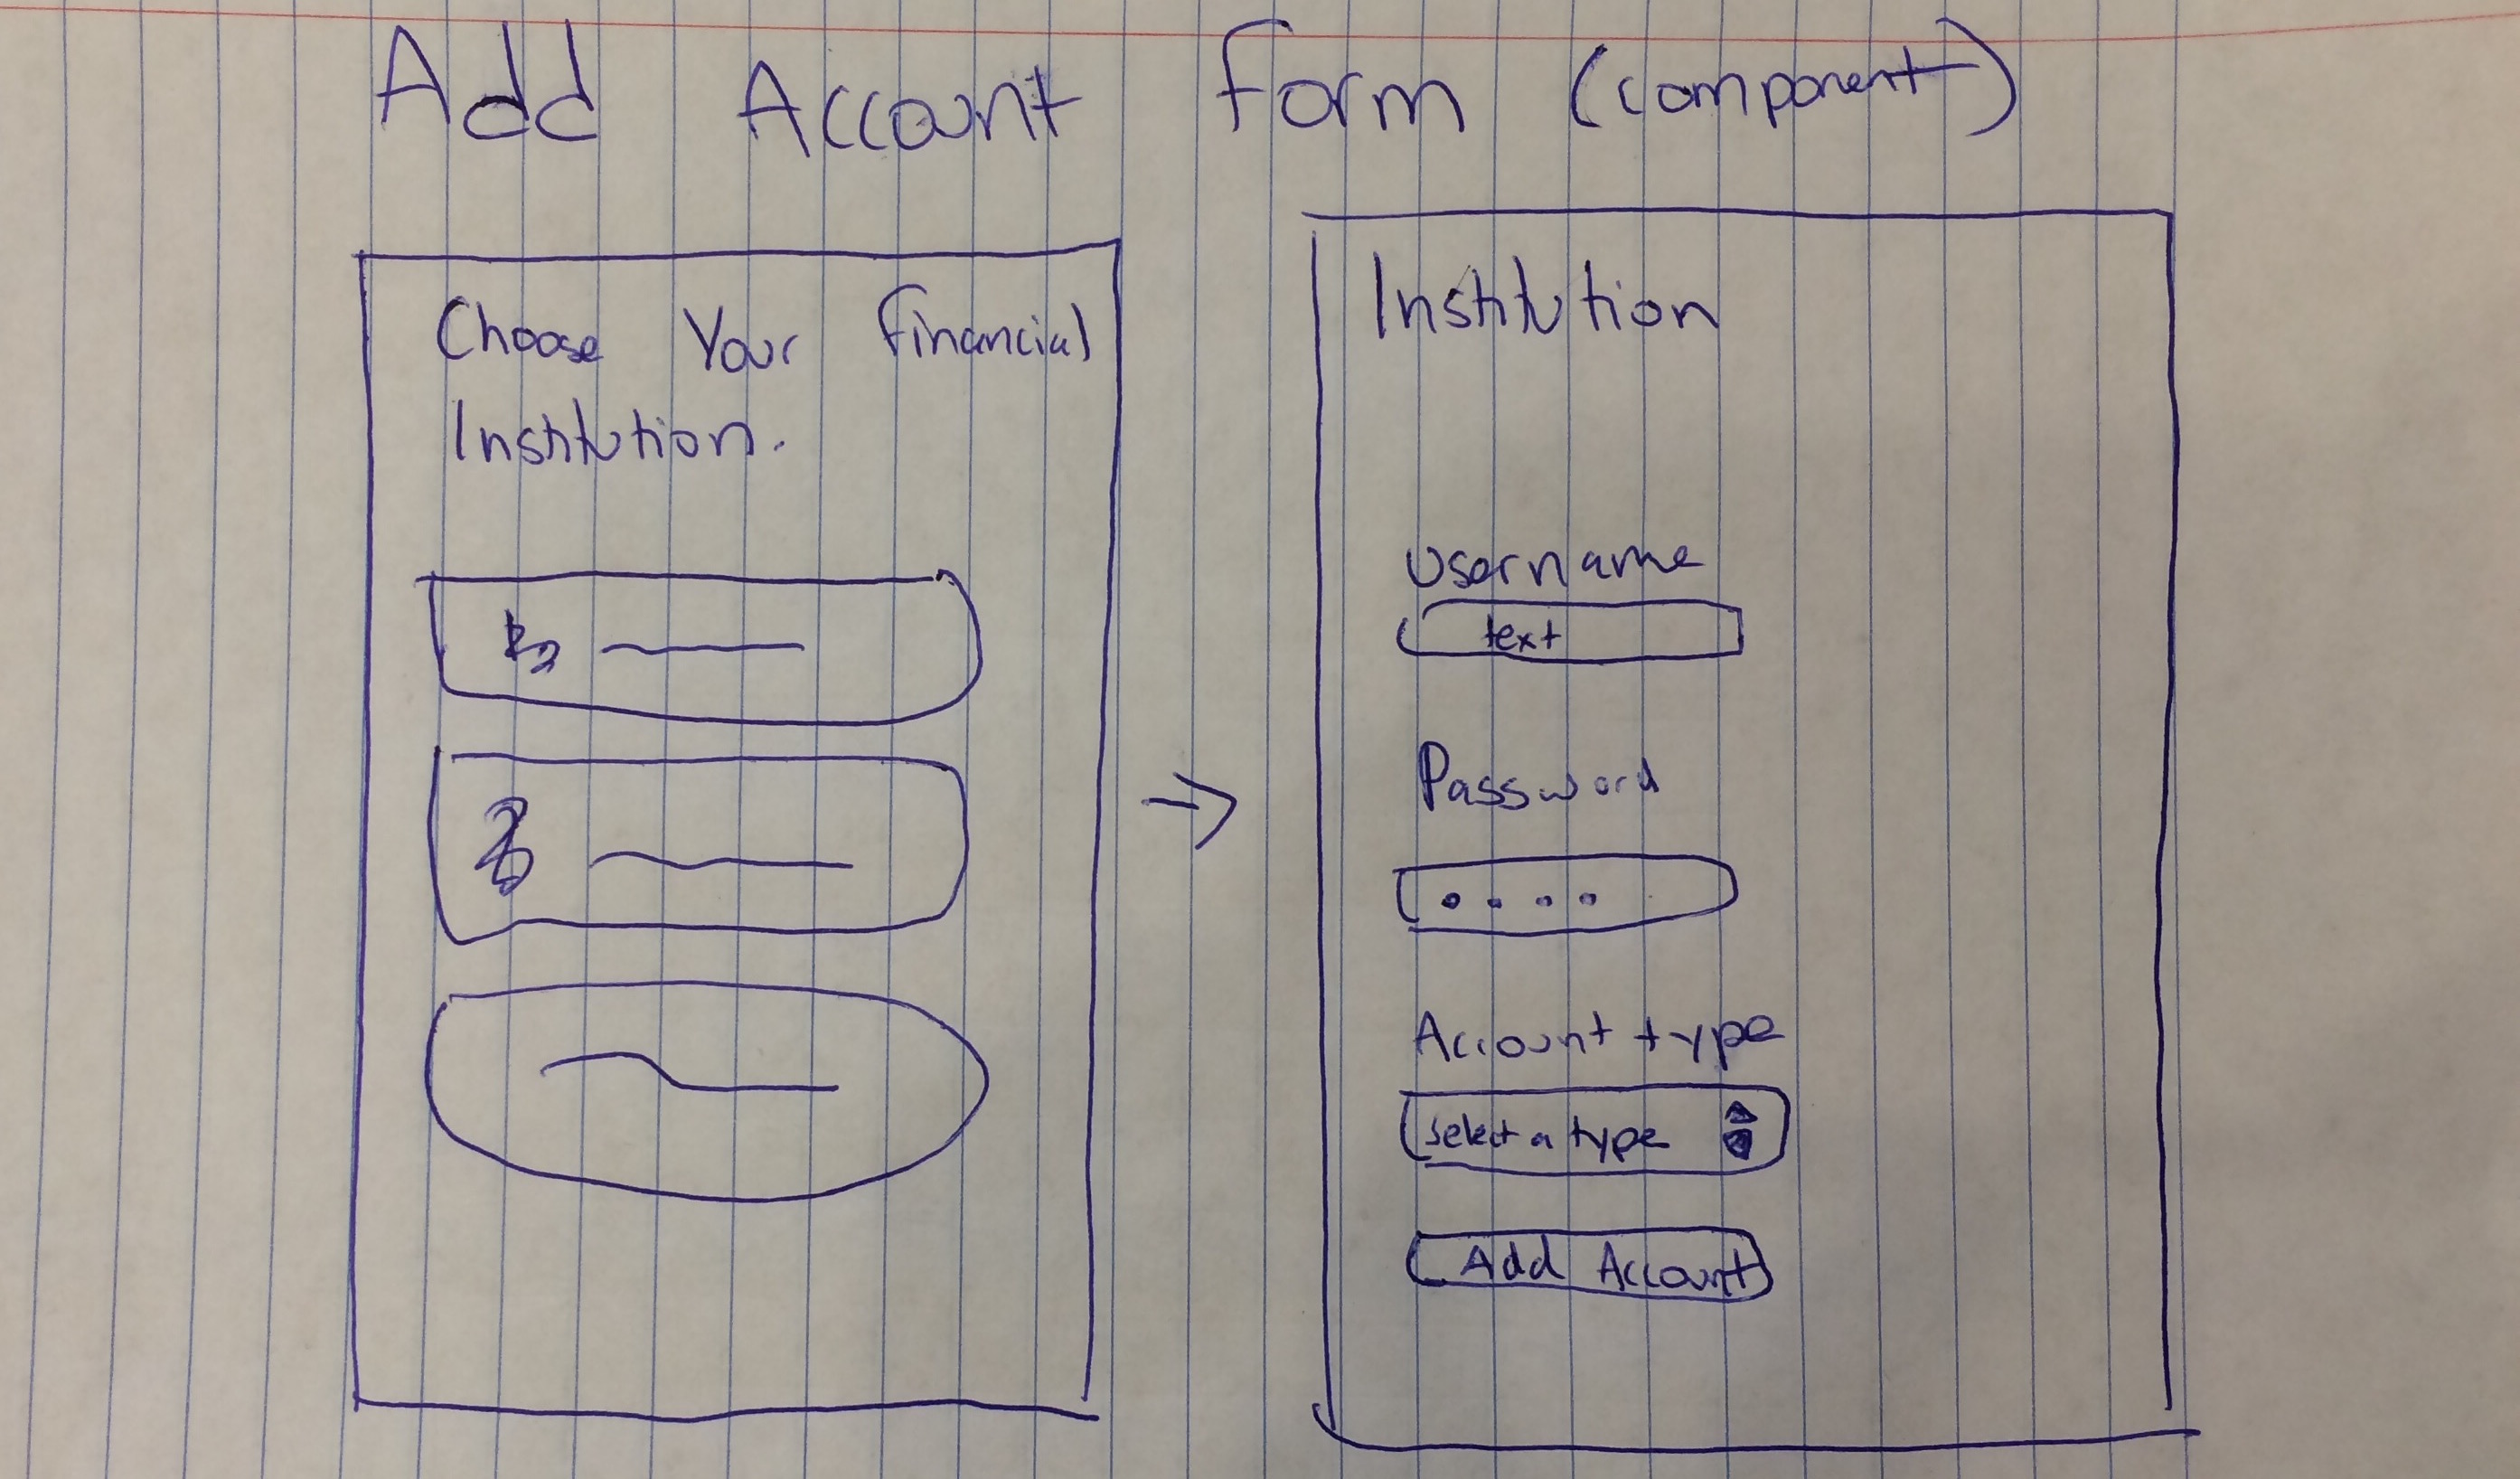 Add Account Form (component)
Choose Your Financial
Institution.
Institution
Username
text
Password
Account type
Select a type
Add Account